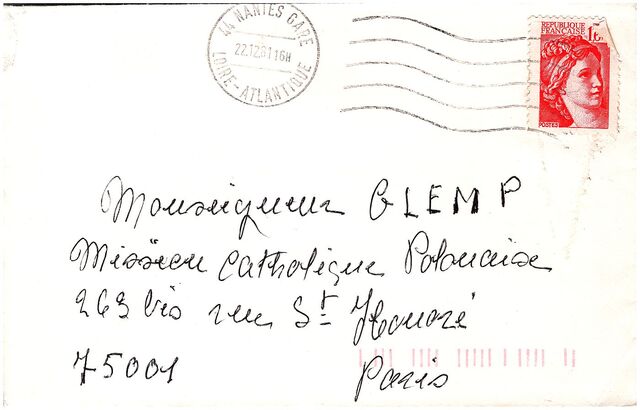 44 NANTES GARE
22.12.81 16H
LOIRE-ATLANTIQUE
REPUBLIQUE
FRANÇAISE
POSTES
Monseigneur GLEMP
Mission Catholique Polonaise
263 bis rue St Honoré
75001 Paris